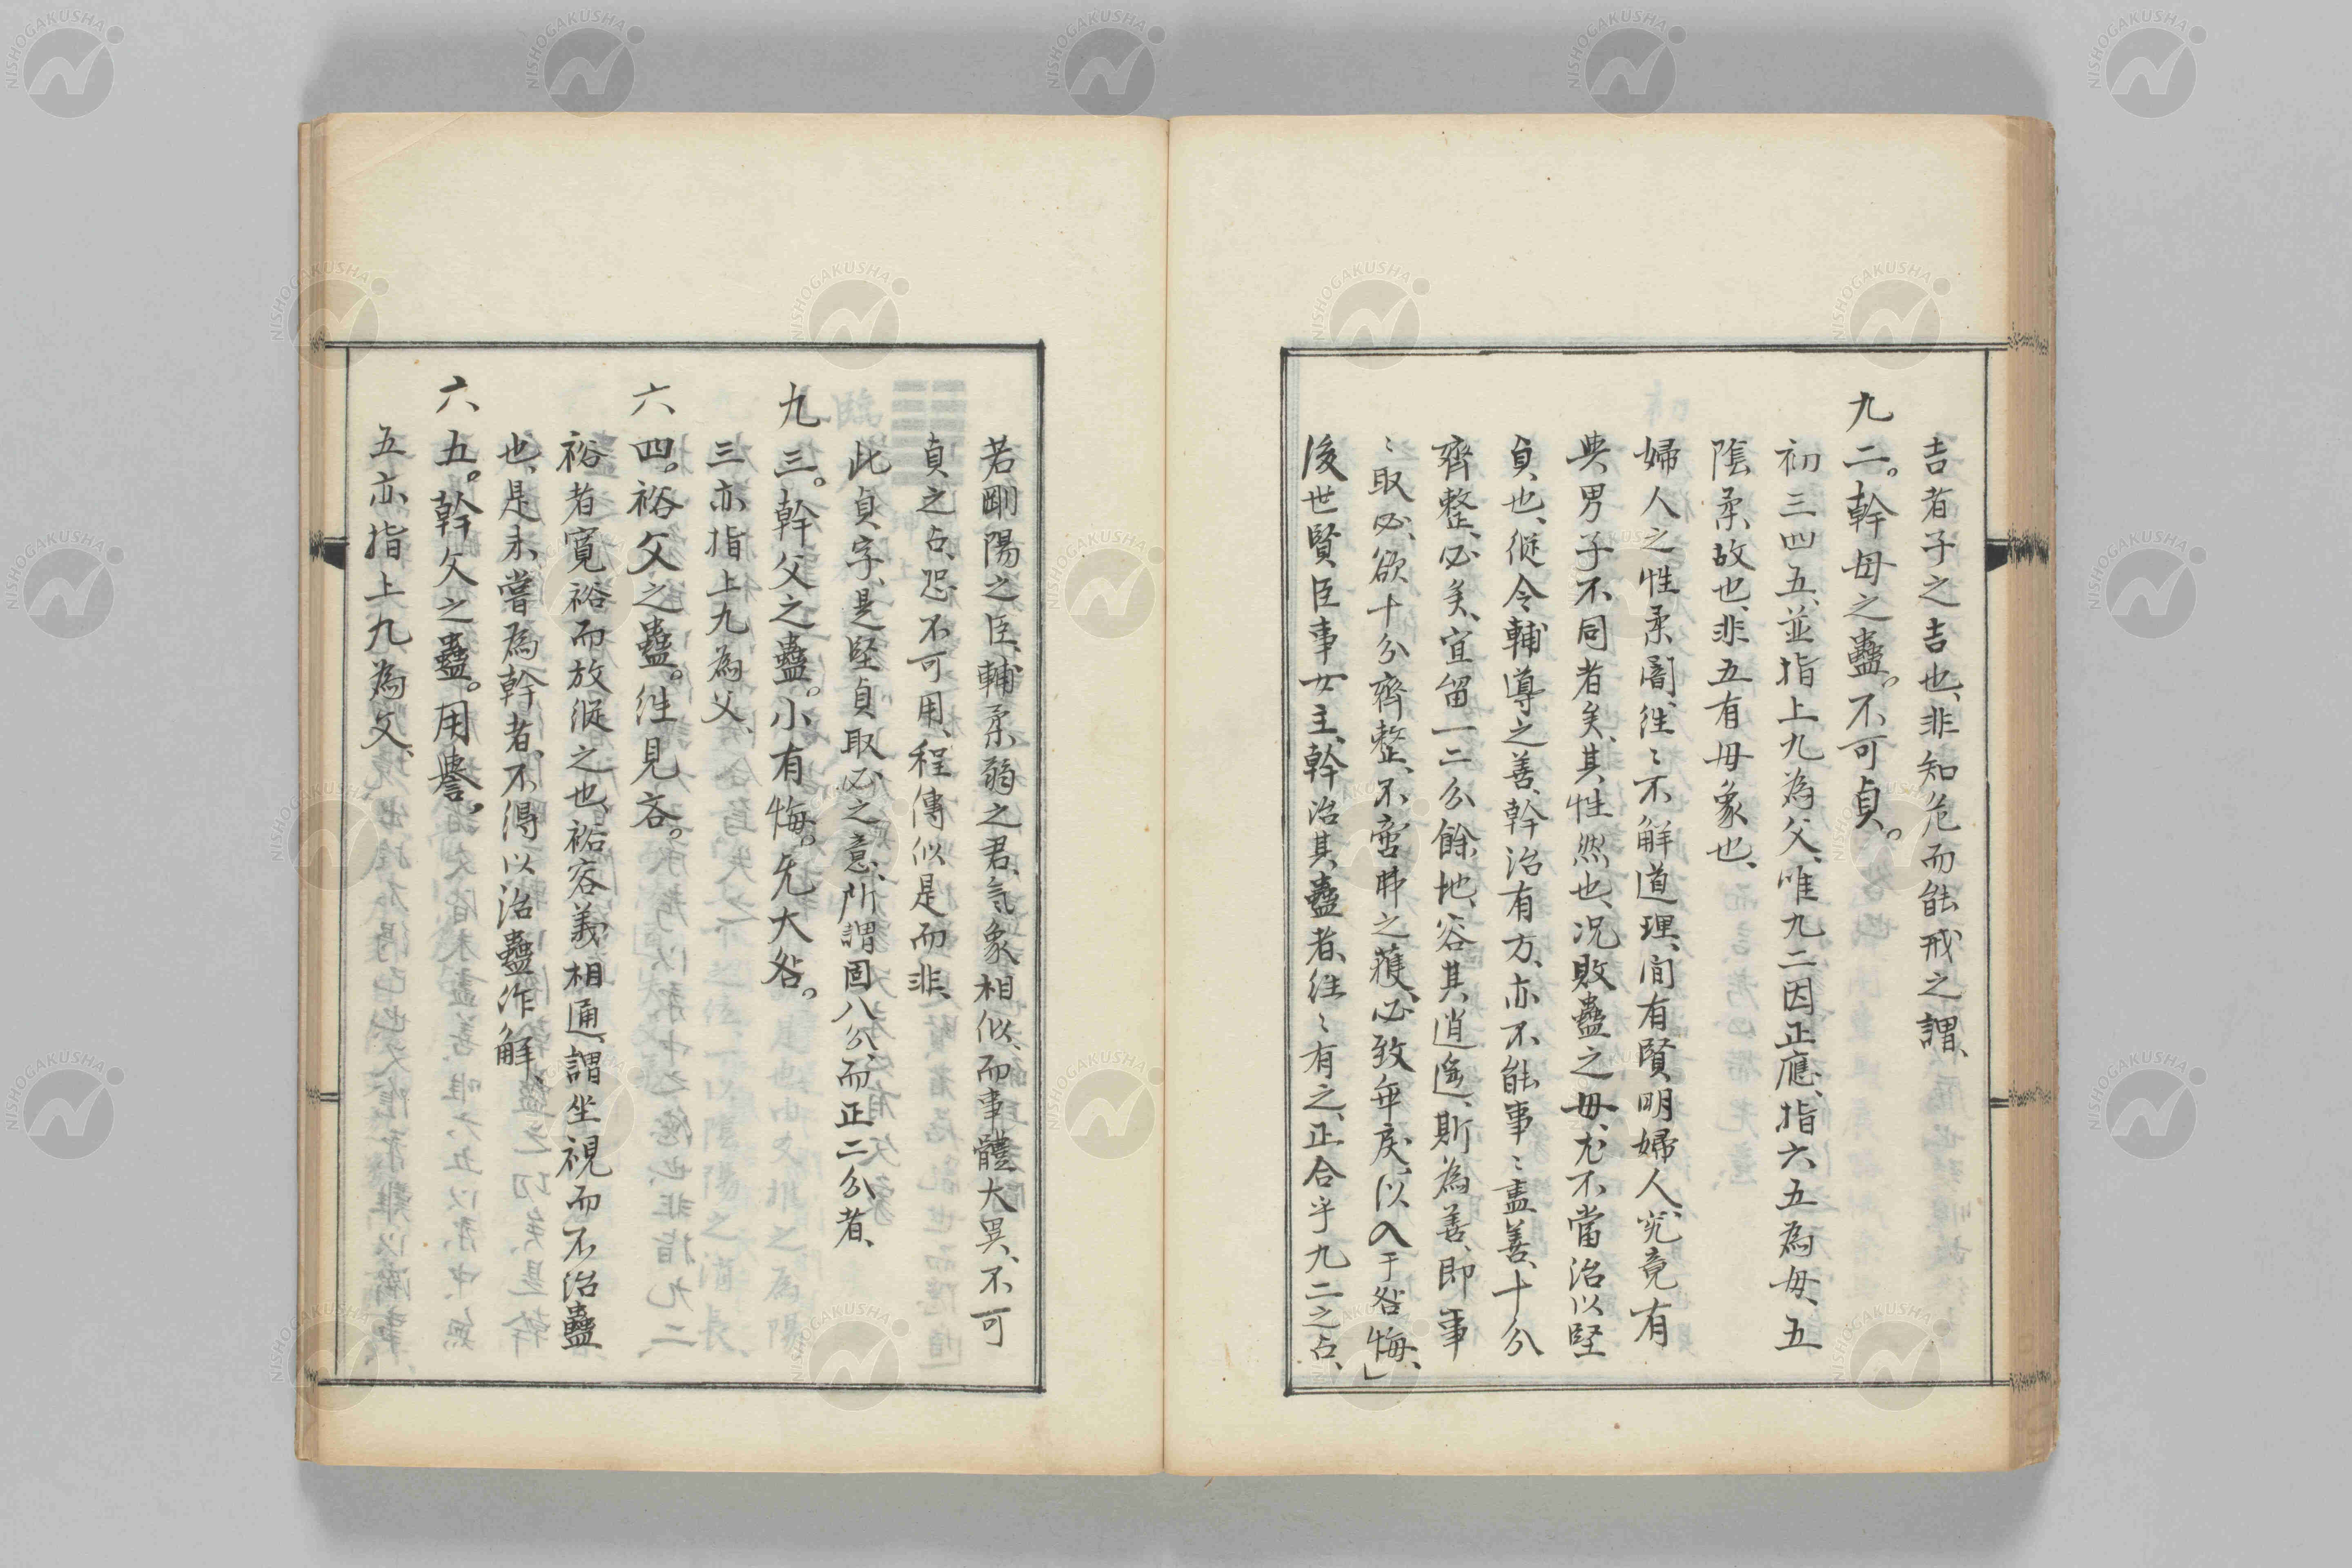 吉者子之吉也、非知危而能戒之謂、
九二。幹母之蠱。不可貞。
初三四五、並指上九為父、唯九二因正應、指六五為母、五
陰柔故也、非五有毋象也、
婦人之性柔闇、往〻不解道理、間有賢明婦人、究竟有
與男子不同者矣、其性然也、況敗蠱之毋、尤不當治以堅
貞也、縱令輔導之善、幹治有方、亦不能事〻盡善、十分
齊整、必矣、宜留一二分餘地、容其逍遙、斯為善、即事
〻取必、欲十分齊整、不啻弗之獲、必致乖戾、以入于咎悔、」
後世賢臣事女主、幹治其蠱者、往〻有之、正合乎九二之占、
若剛陽之臣、輔柔弱之君、氣象相似、而事體大異、不可
貞之占、恐不可用、程傳似是而非、
此貞字、是堅貞取必之意、所謂固八分、而正二分者、
九三。幹父之蠱。小有悔。无大咎。
三亦指上九為父、
六四。裕父之蠱。往見吝。
裕者寬裕而放縱之也、裕容義相通、謂坐視而不治蠱
也、是未嘗為幹者、不得以治蠱作解、
六五。幹父之蠱。用譽。
五亦指上九為父、
NISHOGAKUSHA